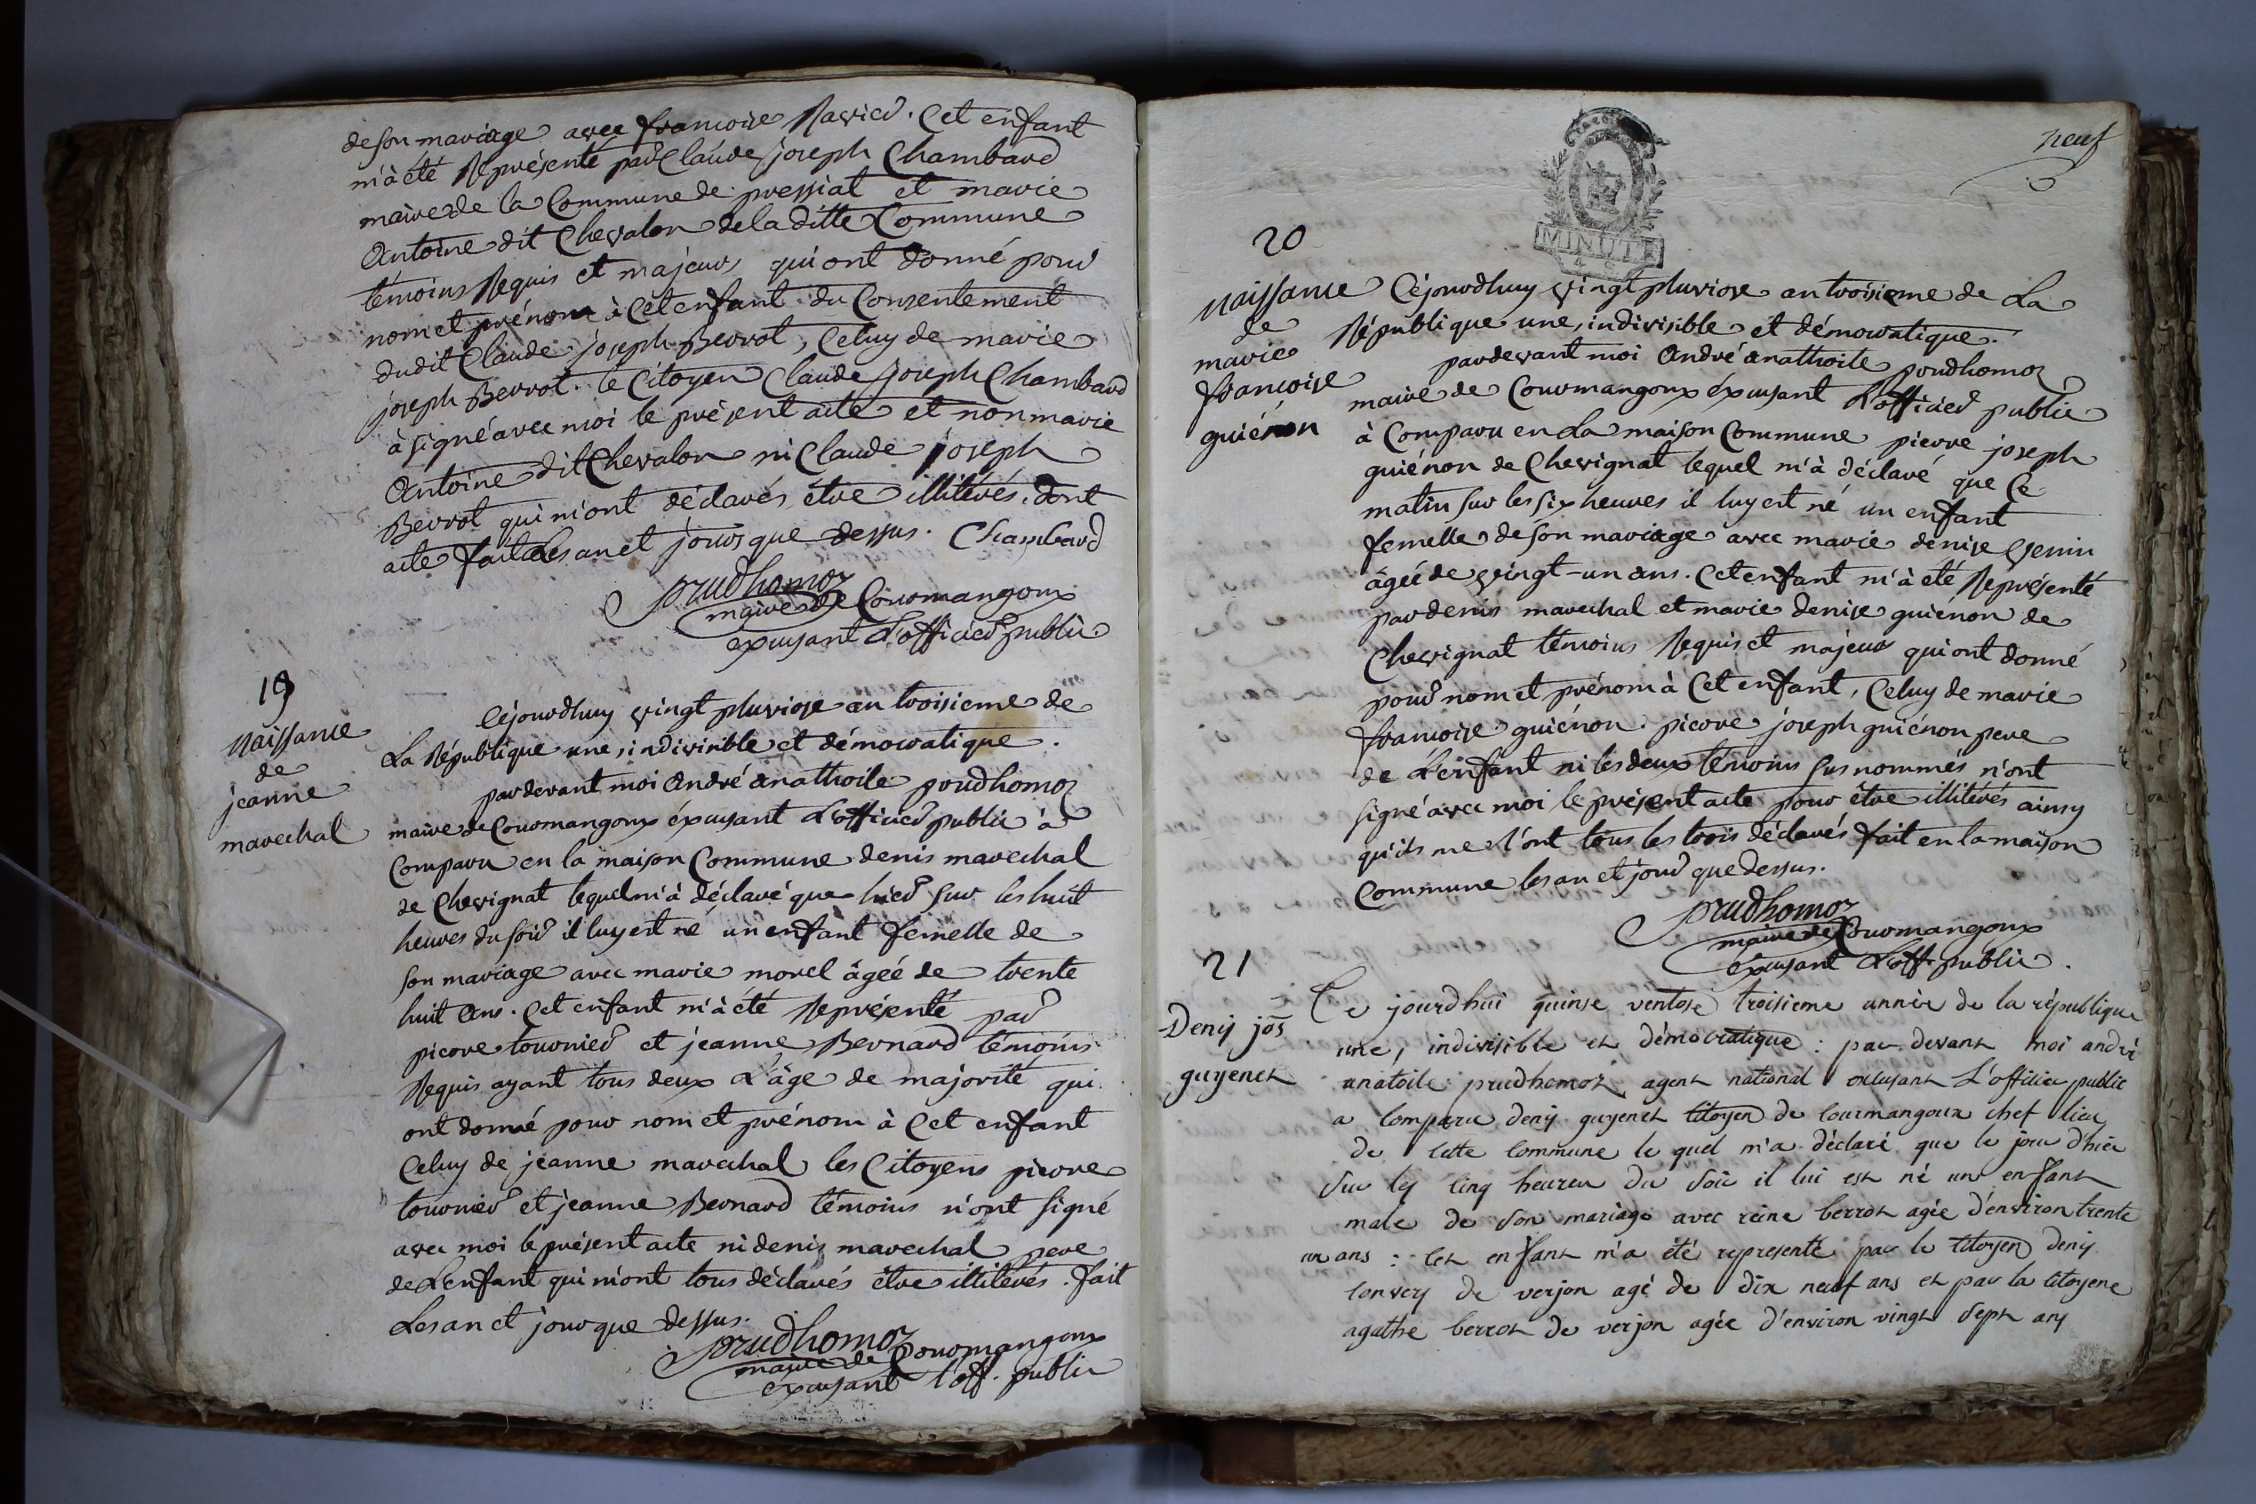 de son mariage avec francoise Ravier. Cet enfant
m'à été Représenté par Claude joseph Chambard
maire de la Commune de pressiat et marie
Antoine dit Chevalon de la ditte Commune
témoins Requis et majeurs qui ont donné pour
nom et prénom à Cet enfant du Consentement
dudit Claude joseph Berrot, Celuy de marie
joseph Berrot. le Citoyen Claude joseph Chambard
à signé avec moi le présent acte et non marie
Antoine dit Chevalon ni Claude joseph
Berrot qui m'ont déclarés être illitérés. dont
acte fait les an et jours que dessus. Chambard
prudhomoz
maire de Courmangoux
exerçant L'officier public.
19
naissance
de
jeanne
marechal
Cejourdhuy vingt pluviose an troisieme de
La République une, indivisible et démocratique.
pardevant moi André anathoile prudhomoz
maire de Courmangoux éxerçant L'officier public à
Comparu en la maison Commune denis marechal
de Chevignat lequel m'à déclaré que hier sur les huit
heures du soir il luy est né un enfant femelle de
son mariage avec marie morel âgéé de trente
huit ans. Cet enfant m'à été Représenté par
pierre tournier et jeanne Bernard témoins
Requis ayant tous deux L'âge de majorité qui
ont donné pour nom et prénom à Cet enfant
Celuy de jeanne marechal les Citoyens pierre
tournier et jeanne Bernard témoins n'ont signé
avec moi le présent acte ni denis marechal pere
de L'enfant qui m'ont tous déclarés être illitérés. fait
Les an et jour que dessus.
prudhomoz
maire de Courmangoux
exerçant l'off. public
neuf
MINUTE
20
naissance
de
marie
francoise
guiénon
Cejourdhuy vingt pluviose an troisieme de La
République une, indivisible et démocratique.
pardevant moi André anathoile prudhomoz
maire de Courmangoux éxerçant L'officier public
à Comparu en La maison Commune pierre joseph
guiénon de Chevignat lequel m'à déclaré que Ce
matin sur les six heures il luy est né un enfant
femelle de son mariage avec marie denise genin
âgéé de vingt-un ans. Cet enfant m'à été Représenté
par denis marechal et marie denise guienon de
Chevignat témoins Requis et majeurs qui ont donné
pour nom et prénom à Cet enfant, Celuy de marie
francoise guiénon. pierre joseph guiénon pere
de L'enfant ni les deux témoins sus nommés n'ont
signé avec moi le présent acte pour être illitérés ainsy
qu'ils me l'ont tous les trois déclarés fait en la maison
Commune les an et jour que dessus.
prudhomoz
maire de Courmangoux
exerçant L'off. public.
21
Denis jos
guyenet
Ce jourd'hui quinse ventose troisieme année de la république
une, indivisible et démocratique : par devant moi andré
anatoile prudhomoz agent national exerçant L'officier public
a comparu denis guyenet citoyen de courmangoux chef lieu
de cette commune le quel m'a déclaré que le jour d'hier
sur les cinq heures du soir il lui est né un enfant
male de son mariage avec reine berrot agée d'environ trente
un ans : cet enfant m'a été representé par le citoyen denis
convery de verjon agé de dix neuf ans et par la citoyene
agathe berrot de verjon agée d'environ vingt sept ans